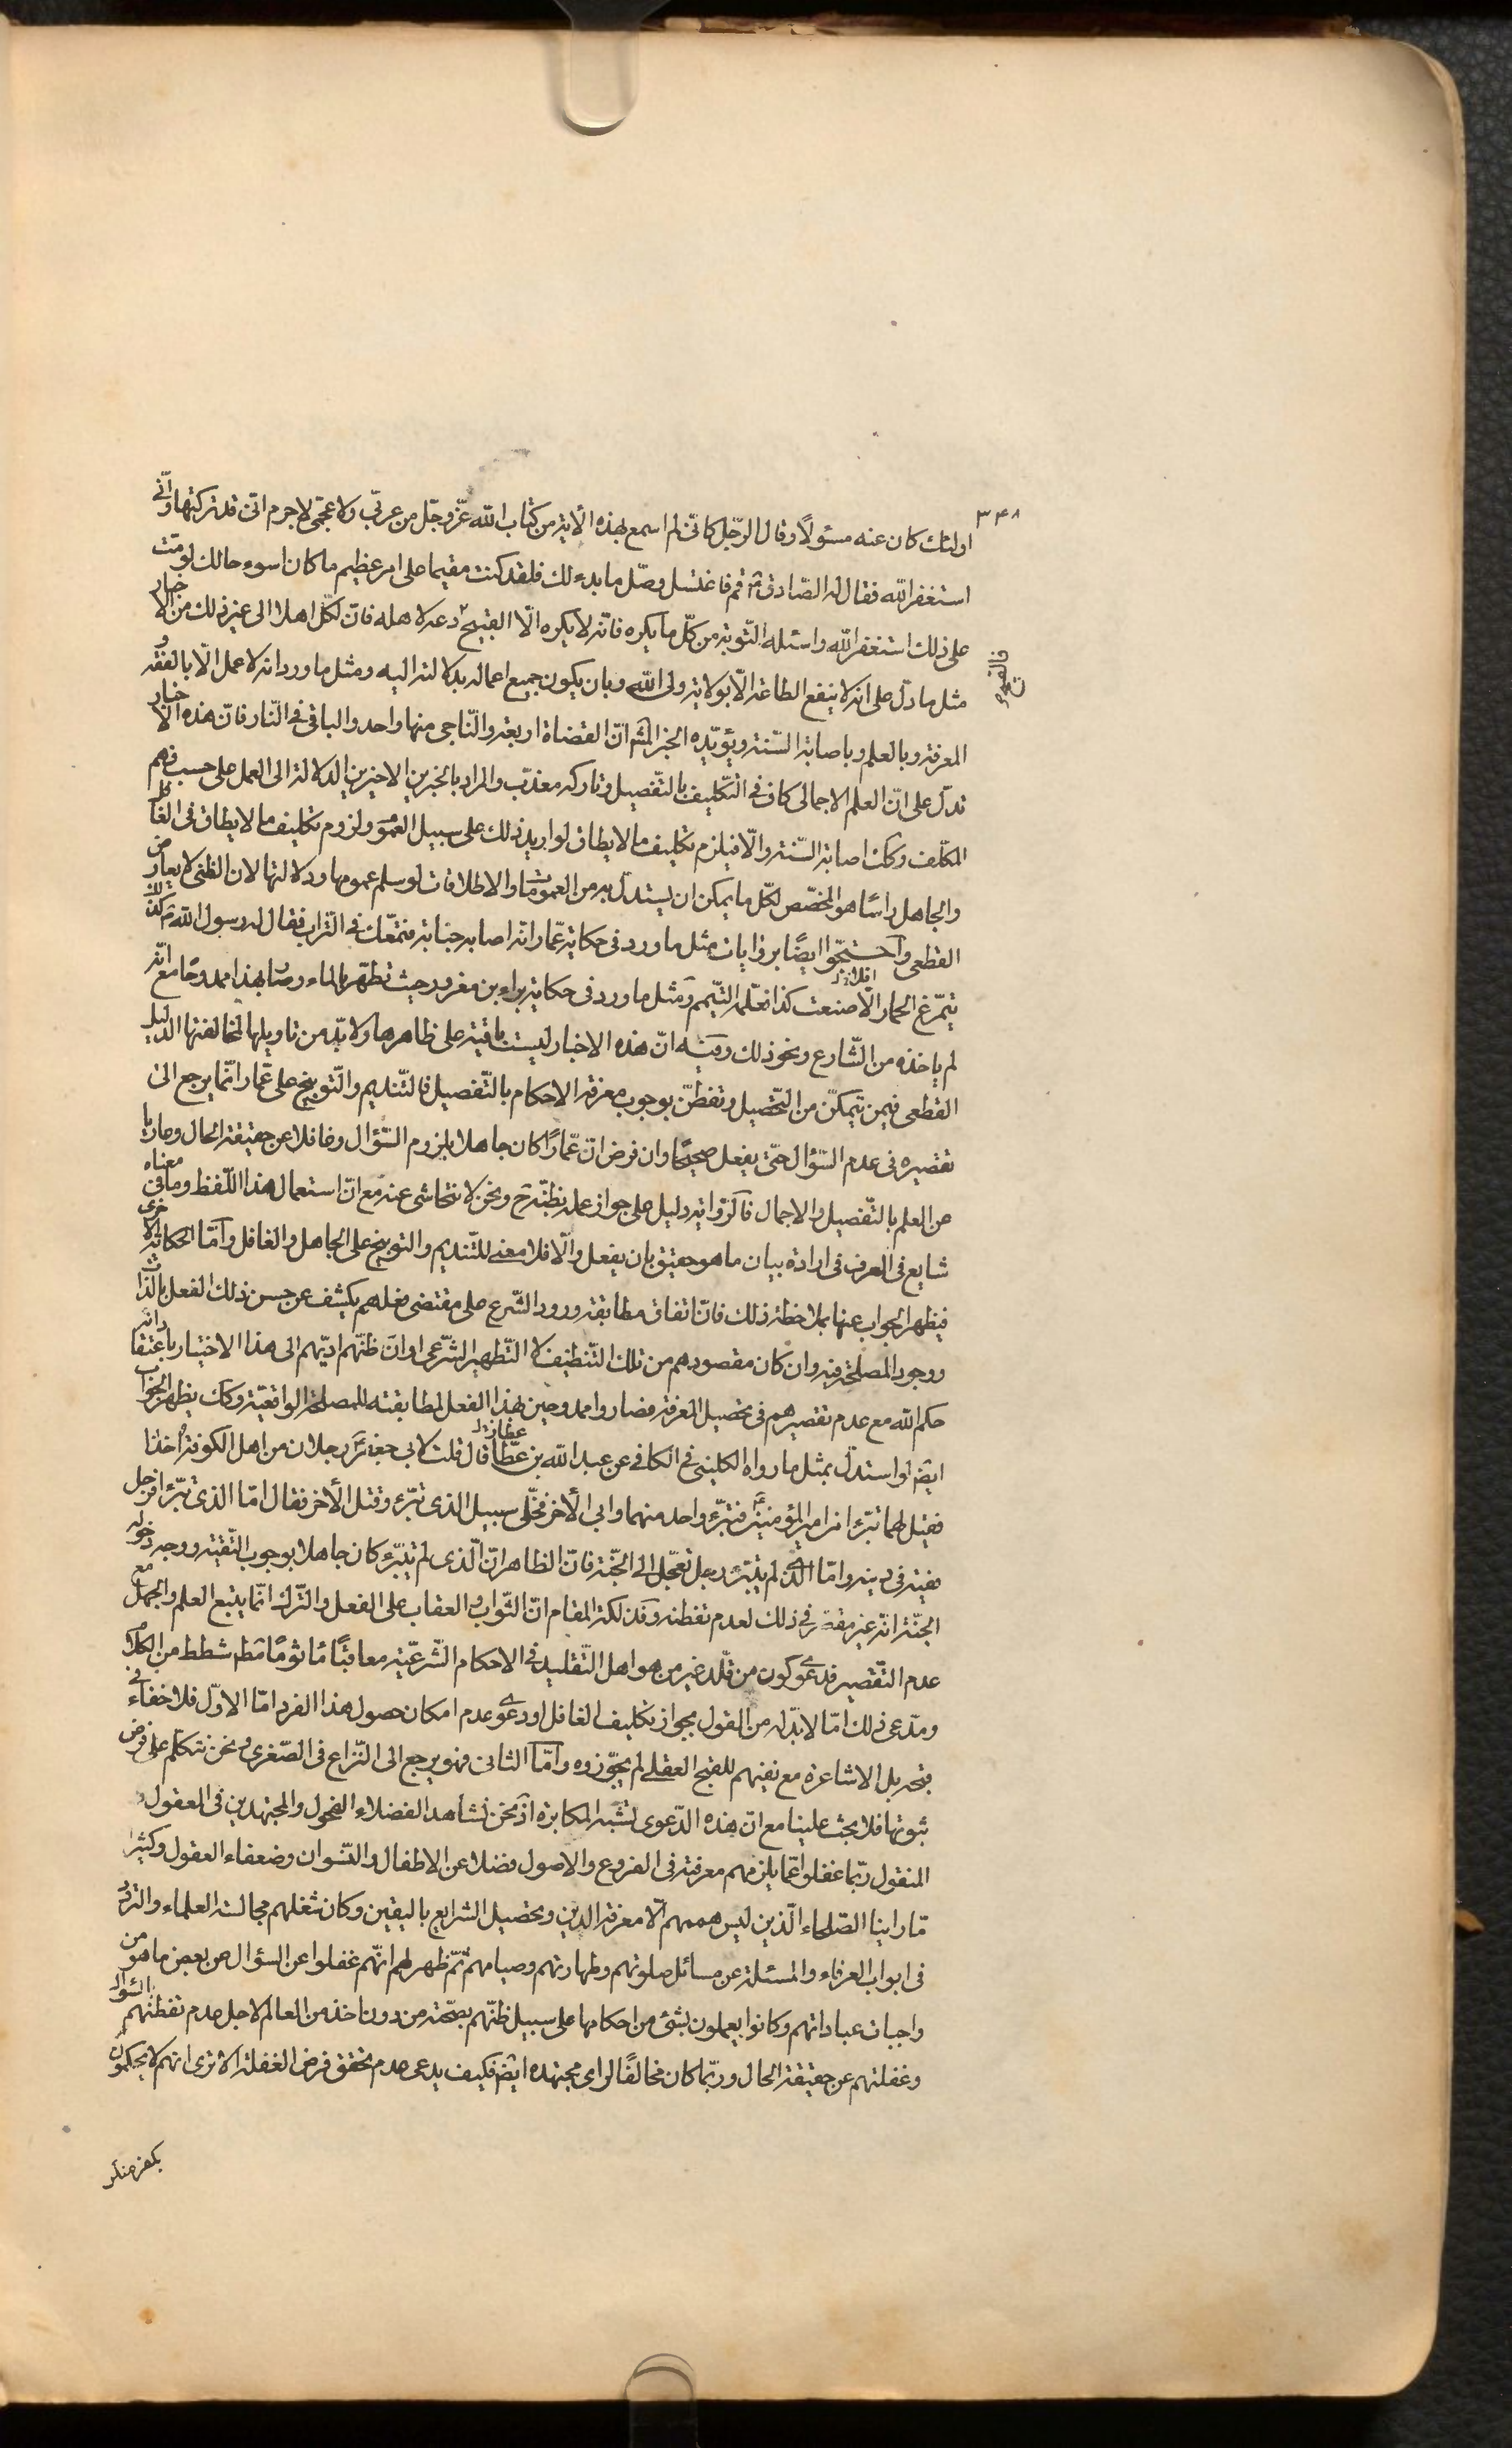 ٣٤٨
اولئك كان عنه مسئولًا وقال الرّجل كانّى لم اسمع بهذه الاية من كتاب الله عزّ وجلّ من عربّى ولا عجمّى لا جرم انى قد تركتها وانّى
استغفر الله فقال له الصّادق قم فاغتسل وصلّ ما بدء لك فلقد كنت مقيما على امر عظيم ما كان اسوء حالك لو متّ
على ذلك استغفر الله واسئله التّوبة من كلّ ما يكره فانّه لا يكره الّا القبيح والقبيح دعه لاهله فان لكلّ اهلا الى غير ذلك من الاخبار
مثل ما دلّ على انه لا ينفع الطاعة الّا بولاية ولى الله وبان يكون جميع اعماله بدلالته اليه ومثل ما ورد انه لا عمل الّا بالفقه و
المعرفة وبالعلم وباصابة السّنة ويؤيّده الخبر المشه انّ القضاة اربعة والنّاجى منها واحد والباقى فى النّار فانّ هذه الاخبار
تدلّ على انّ العلم الاجمالى كاف فى التّكليف بالتّفصيل وتاركه معذّب والمراد بالخبرين الاخيرين الدلالة الى العمل على حسب فهم
المكلّف وكك اصابة السّنة والّا فيلزم تكليف ما لا يطاق لو اريد ذلك على سبيل العموم ولزوم تكليف ما لا يطاق فى الغافل
والجاهل راسًا هو المخصّص لكلّ ما يمكن ان يستدلّ به من العمومات والاطلاقات لو سلم عمومها ودلالتها لان الظنى لا يعارض
القطعى واحتجّوا ايضًا بروايات مثل ما ورد فى حكاية عمّار انّه اصابه جنابة فتمعّك فى التّراب فقال له رسول الله كذلك
يتمرّغ الحمار الا صنعت كذا فعلّمه التيّمم ومثل ما ورد فى حكاية براء بن معرور حيث تطهّر بالماء وصار بهذا ممدوحًا مع انّه
لم ياخذه من الشّارع ونحو ذلك وفيه انّ هذه الاخبار ليست باقية على ظاهرها ولا بدّ من تاويلها لمخالفتها الدّليل
القطعى فيمن يتمكّن من التّحصيل وتفطّن بوجوب معرفة الاحكام بالتّفصيل فالتّنديم والتّوبيخ على عمّار انّما يرجع الى
تقصيره فى عدم السّؤال حتّى يفعل صحيحًا وان فرض انّ عمّارًا كان جاهلا بلزوم السّؤال وغافلا عن حقيقة الحال وعاريا
عن العلم بالتّفصيل والاجمال فالرّواية دليل على جواز عمله بظنّه ح ونحن لا نتحاشى عنه مع انّ استعمال هذا اللّفظ وما فى معناه
شايع فى العرف فى ارادة بيان ما هو حقيق بان يفعل والّا فلا معنى للتّنديم والتوبيخ على الجاهل والغافل وامّا الحكاية الاخرى
فيظهر الجواب عنها بملاحظة ذلك فانّ اتفاق مطابقة ورود الشّرع على مقتضى فعلهم يكشف عن حسن ذلك الفعل بالذّات
ووجود المصلحة فيه وان كان مقصودهم من تلك التّنظيف لا التّطهير الشّرعى او ان ظنّهم ادّيهم الى هذا الاختيار باعتقاد انّه
حكم الله مع عدم تقصيرهم فى تحصيل المعرفة فصاروا ممدوحين بهذا الفعل لمطابقته للمصلحة الواقعيّة وكك يظهر الجواب
ايضا لو استدلّ بمثل ما رواه الكلينى فى الكافى عن عبد الله بن عطا قال قلت لابى جعفر رجلان من اهل الكوفة اخذا
فقيل لهما تبرّءا من امير المؤمنين فتبرّء واحد منهما وابى الاخر فخلّى سبيل الذى تبرّء وقتل الأخر فقال امّا الذى تبرّء فرجل
فقيه فى دينه وامّا الّذى لم يتبرّء رجل تعجّل الى الجّنة فانّ الظاهر انّ الّذى لم يتبرّء كان جاهلا بوجوب التّقية ووجه دخوله
الجنّة انّه غير مقصّر فى ذلك لعدم تفطنه وفذلكة المقام انّ الثّواب والعقاب على الفعل والتّرك انّما يتبع العلم والجهل مع
عدم التّقصير فدعوى كون من قلّد غير من هو اهل التّقليد فى الاحكام الشّرعيّة معاقبًا مأثومًا مطلقا شطط من الكلام
ومدّعى ذلك امّا لا بدّ له من القول بجواز تكليف الغافل او دعوى عدم امكان حصول هذا الفرد امّا الاوّل فلا خفاء فى
قبحه بل الاشاعرة مع نفيهم للقبح العقلى لم يجوّزوه وامّا الثانى فهو يرجع الى النّزاع فى الصّغرى ونحن نتكلّم على فرض
ثبوتها فلا بحث علينا مع انّ هذه الدّعوى تشبه المكابرة اذ نحن نشاهد الفضلاء الفحول والمجتهدين فى العقول و
المنقول ربّما غفلوا عمّا يلزمهم معرفته فى الفروع والاصول فضلا عن الاطفال والنّسوان وضعفاء العقول وكثيرا
مّا راينا الصّلحاء الّذين ليس همهم الّا معرفة الدين وتحصيل الشرايع باليقين وكان شغلهم مجالسة العلماء والتردّد
فى ابواب العرفاء والمسئلة عن مسائل صلوتهم وطهارتهم وصيامهم ثمّ ظهر لهم انّهم غفلوا عن السؤال عن بعض ما هو من
واجبات عباداتهم وكانوا يعملون بشئ من احكامها على سبيل ظنّهم بصحّته من دون اخذ من العالم لاجل عدم تفطنهم بالسّؤال
وغفلتهم عن حقيقة الحال وربّما كان مخالفًا لراى مجتهده ايضا فكيف يدعى عدم تحقق فرض الغفلة الا ترى انهم لا يحكمون